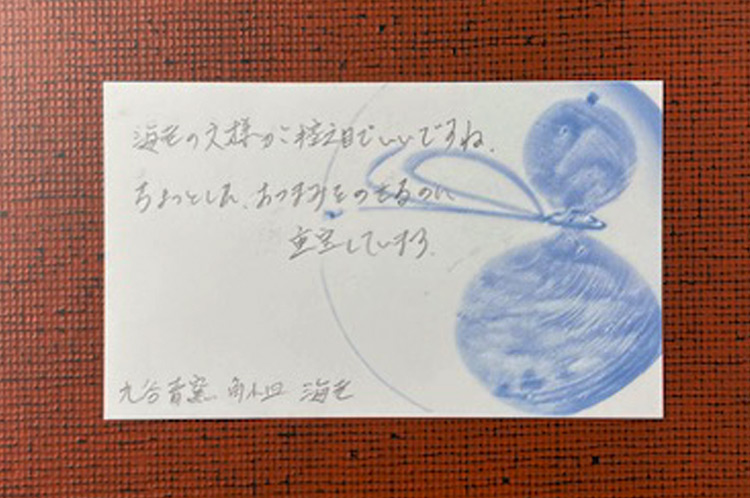 海老の文様が控え目でいいですね。
ちょっとした、おつまみをのせるのに
重宝しています。
九谷青窯 角小皿 海老